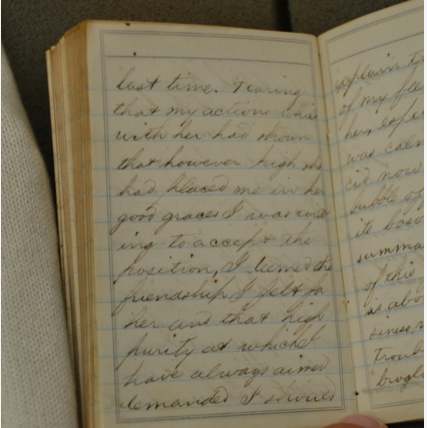 last time. Fearing
that my actions while
with her had shown
that however high she
had placed me in her
good graces I was
ing to accept the
position, I deemed the
friendship I felt for
her and that high
purity at which I
have always aimed
demanded I should
explain
of my fee
her,
was calm
cid now
bubble of
its bos
summa
of this
is abo
siness
troub